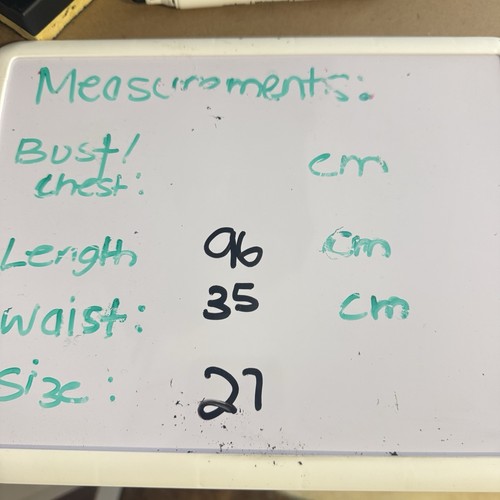 Measurements:
Bust/
chest: cm
Length 96 cm
Waist: 35 cm
Size: 27